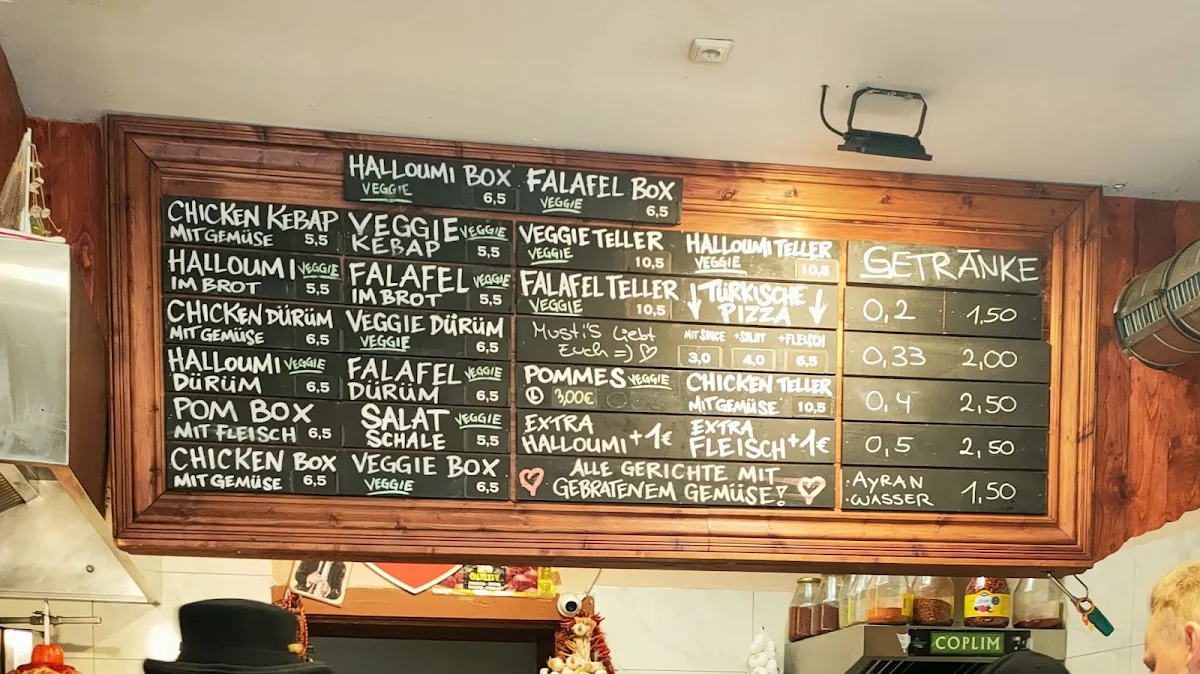 HALLOUMI BOX
VEGGIE 6,5
FALAFEL BOX
VEGGIE 6,5
CHICKEN KEBAP
MIT GEMÜSE 5,5
HALLOUMI VEGGIE
IM BROT 5,5
CHICKEN DÜRÜM
MIT GEMÜSE 6,5
HALLOUMI VEGGIE
DÜRÜM 6,5
POM BOX
MIT FLEISCH 6,5
CHICKEN BOX
MIT GEMÜSE 6,5
VEGGIE VEGGIE
KEBAP 5,5
FALAFEL VEGGIE
IM BROT 5,5
VEGGIE DÜRÜM
VEGGIE 6,5
FALAFEL VEGGIE
DÜRÜM 6,5
SALAT VEGGIE
SCHALE 5,5
VEGGIE BOX
VEGGIE 6,5
VEGGIE TELLER
VEGGIE 10,5
FALAFEL TELLER
VEGGIE 10,5
Musti'S liebt
Euch =) ♡
POMMES VEGGIE
3,00€
EXTRA
HALLOUMI +1€
HALLOUMI TELLER
VEGGIE 10,5
↓ TÜRKISCHE ↓
PIZZA
MIT SAUCE +SALAT +FLEISCH
3,0 4,0 6,5
CHICKEN TELLER
MIT GEMÜSE 10,5
EXTRA
FLEISCH +1€
♡ ALLE GERICHTE MIT
GEBRATENEM GEMÜSE! ♡
GETRÄNKE
0,2 1,50
0,33 2,00
0,4 2,50
0,5 2,50
·AYRAN
·WASSER 1,50
COPLIM